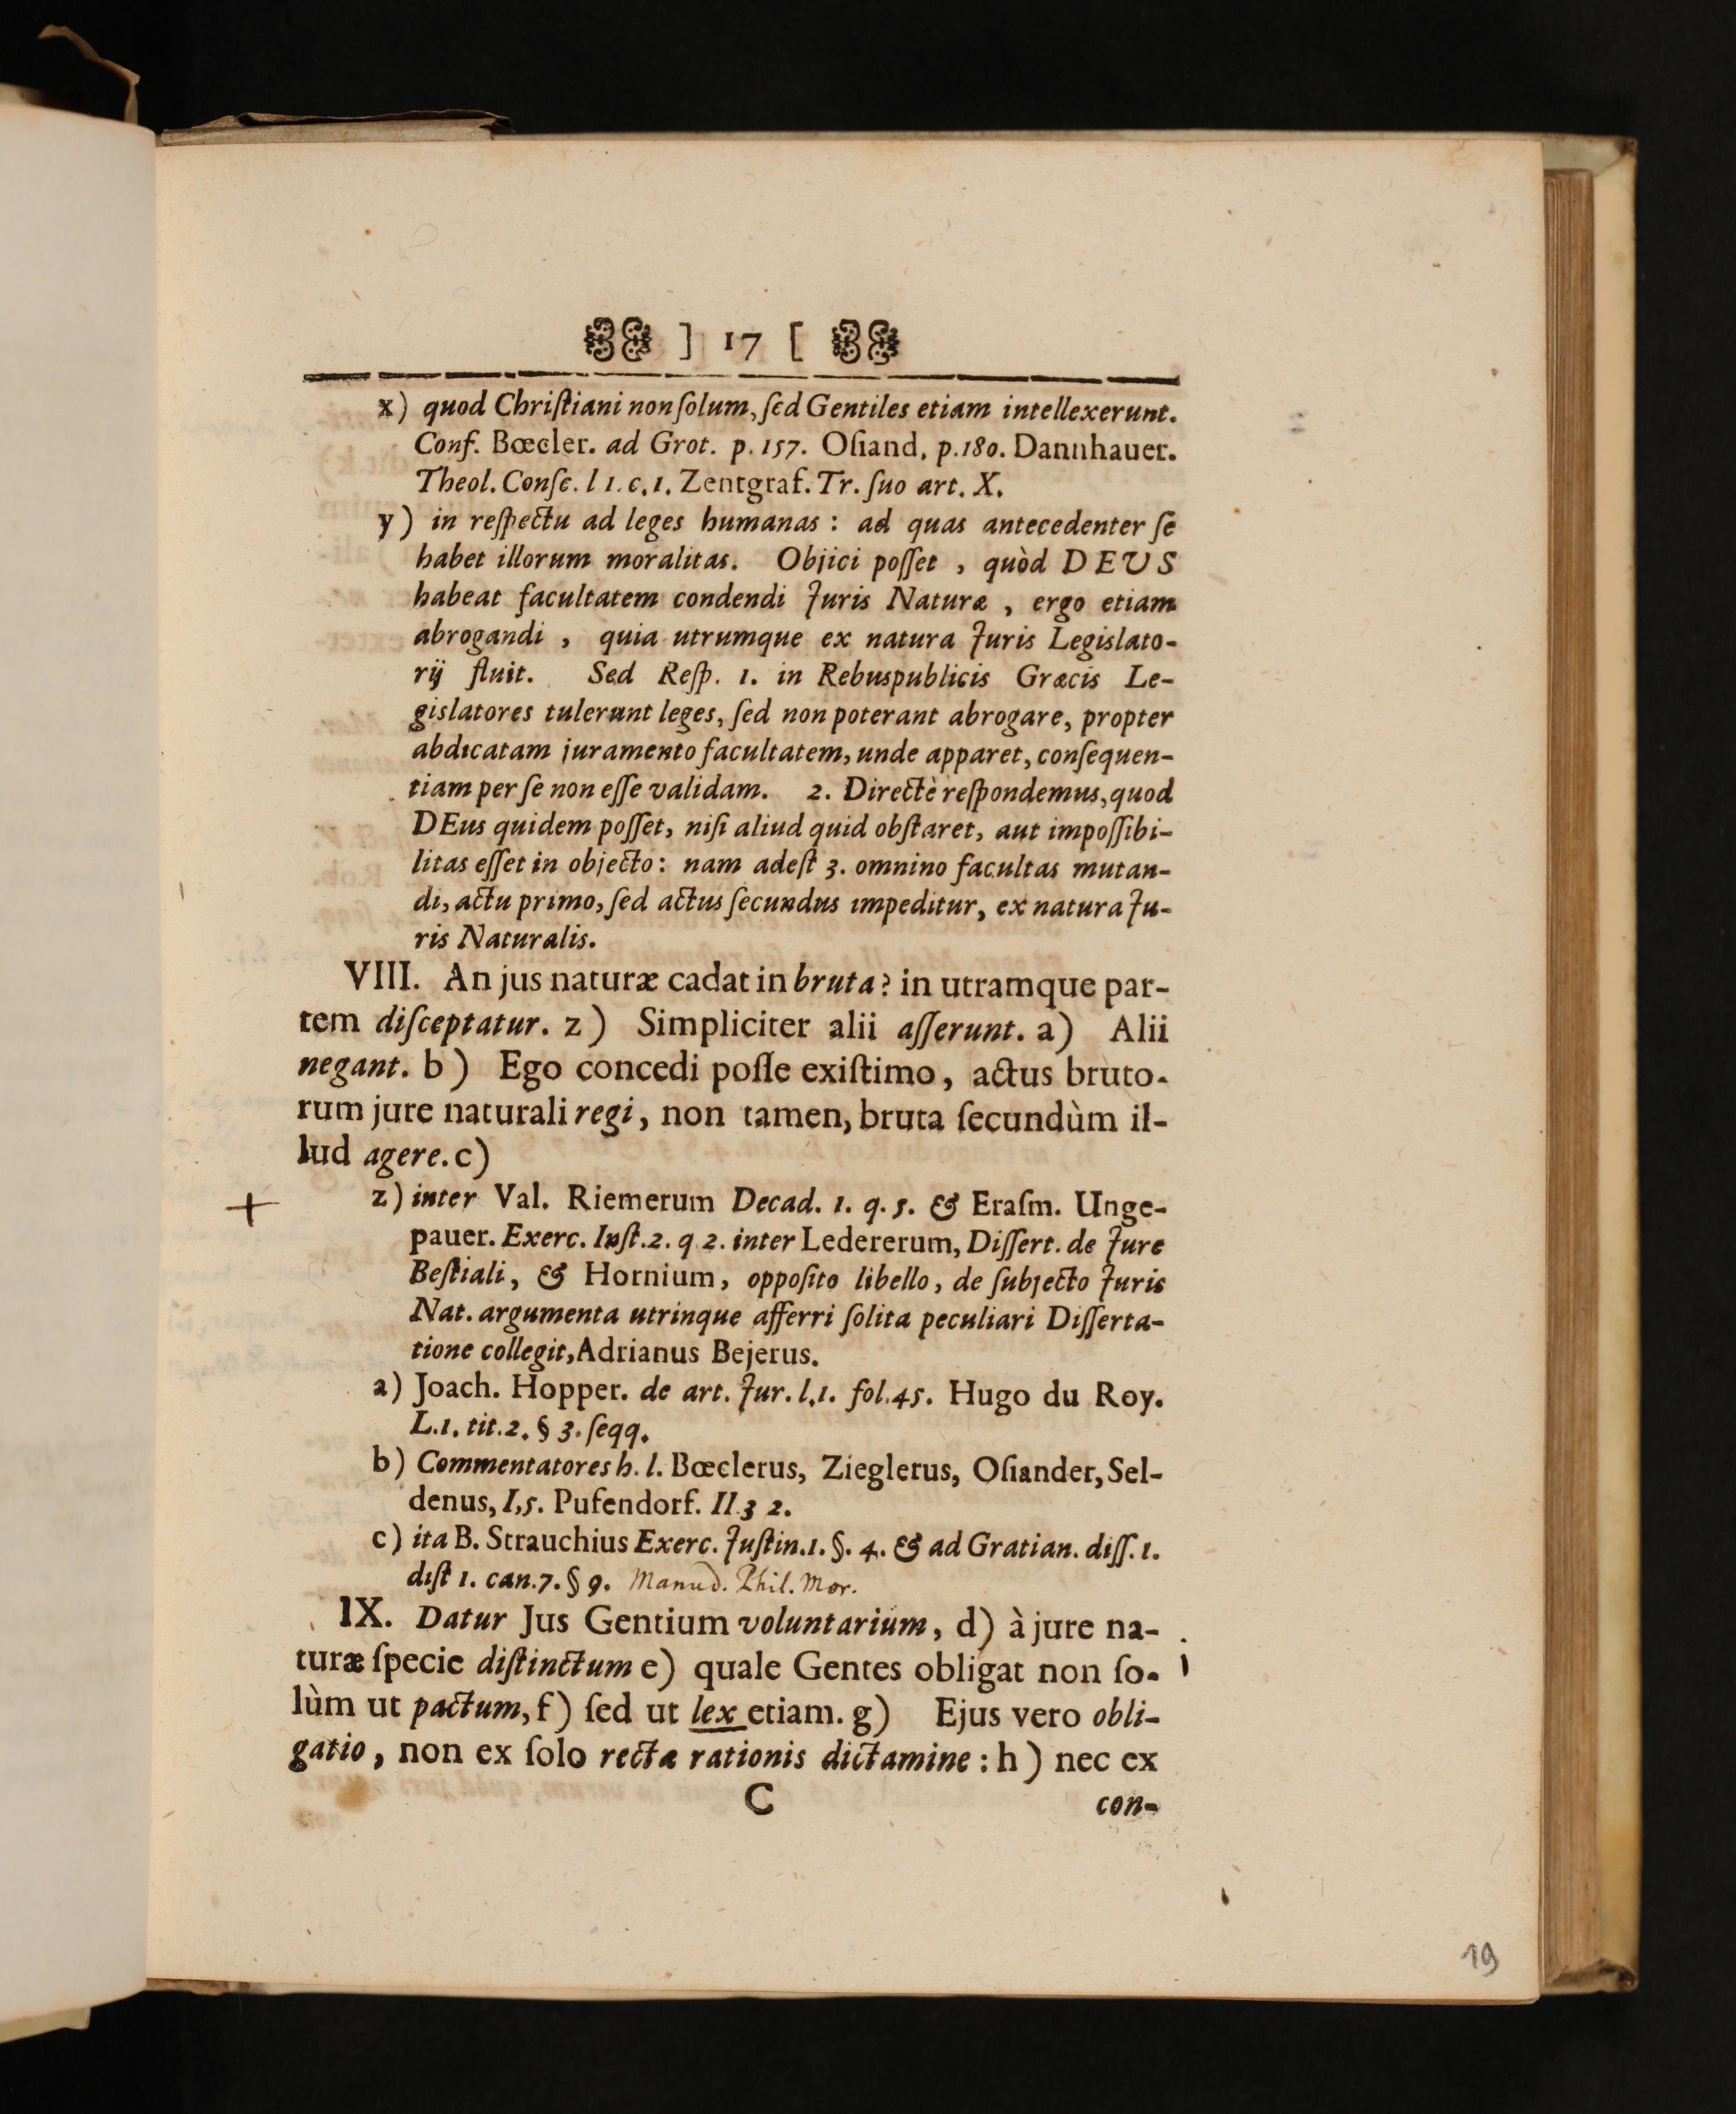 ] 17 [
x) quod Chriſtiani non ſolum, ſed Gentiles etiam intellexerunt.
Conf. Bœcler. ad Grot. p. 157. Oſiand, p. 180. Dannhauer.
Theol. Conſc. l 1. c. 1. Zentgraf. Tr. ſuo art. X.
y) in reſpectu ad leges humanas : ad quas antecedenter ſe
habet illorum moralitas. Objici poſſet , quòd DEUS
habeat facultatem condendi Juris Naturæ , ergo etiam
abrogandi , quia utrumque ex natura Juris Legislato-
rij fluit. Sed Reſp. 1. in Rebuspublicis Græcis Le-
gislatores tulerunt leges, ſed non poterant abrogare, propter
abdicatam juramento facultatem, unde apparet, conſequen-
tiam per ſe non eſſe validam. 2. Directè reſpondemus, quod
DEus quidem poſſet, niſi aliud quid obſtaret, aut impoſſibi-
litas eſſet in objecto: nam adeſt 3. omnino facultas mutan-
di, actu primo, ſed actus ſecundus impeditur, ex natura Ju-
ris Naturalis.
VIII. An jus naturæ cadat in bruta? in utramque par-
tem diſceptatur. z) Simpliciter alii aſſerunt. a) Alii
negant. b) Ego concedi poſſe exiſtimo, actus bruto-
rum jure naturali regi, non tamen, bruta ſecundùm il-
lud agere. c)
+ z) inter Val. Riemerum Decad. 1. q. 5. & Eraſm. Unge-
pauer. Exerc. Inſt. 2. q 2. inter Ledererum, Diſſert. de Jure
Beſtiali, & Hornium, oppoſito libello, de ſubjecto Juris
Nat. argumenta utrinque afferri ſolita peculiari Diſſerta-
tione collegit, Adrianus Bejerus.
a) Joach. Hopper. de art. Jur. l. 1. fol. 45. Hugo du Roy.
L. 1. tit. 2. § 3. ſeqq.
b) Commentatores h. l. Bœclerus, Zieglerus, Oſiander, Sel-
denus, I, 5. Pufendorf. II. 3 2.
c) ita B. Strauchius Exerc. Juſtin. 1. §. 4. & ad Gratian. diſſ. 1.
diſt 1. can. 7. § 9. Manud. Phil. Mor.
IX. Datur Jus Gentium voluntarium, d) à jure na-
turæ ſpecie diſtinctum e) quale Gentes obligat non ſo-
lùm ut pactum, f) ſed ut lex etiam. g) Ejus vero obli-
gatio, non ex ſolo rectæ rationis dictamine : h) nec ex
C con-
19